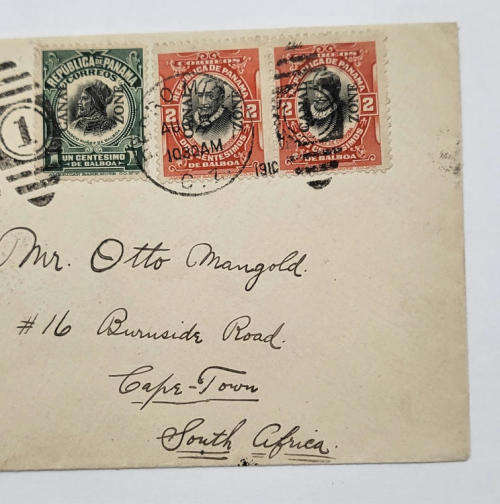 REPUBLICA DE PANAMA
CORREOS
CANAL ZONE
1 UN CENTESIMO 1
DE BALBOA
CORREOS
REPUBLICA DE PANAMA
CANAL ZONE
2 2
CENTESIMOS
DE BALBOA
CORREOS
REPUBLICA DE PANAMA
CANAL ZONE
2 2
CENTESIMOS
DE BALBOA
1
1030AM
C. Z.
1910
Mr. Otto Mangold.
#16 Burnside Road.
Cape-Town
South Africa.